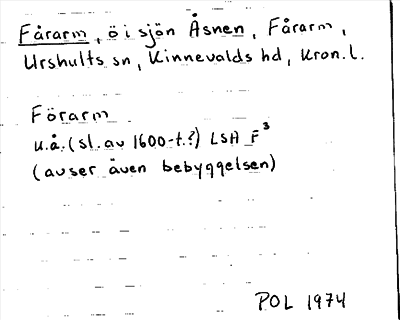 Fårarm, ö i sjön Åsnen, Fårarm,
Urshults sn, Kinnevalds hd, Kron.l.
Förarm
u.å. (sl. av 1600-t.?) LSA F³
(avser även bebyggelsen)
POL 1974